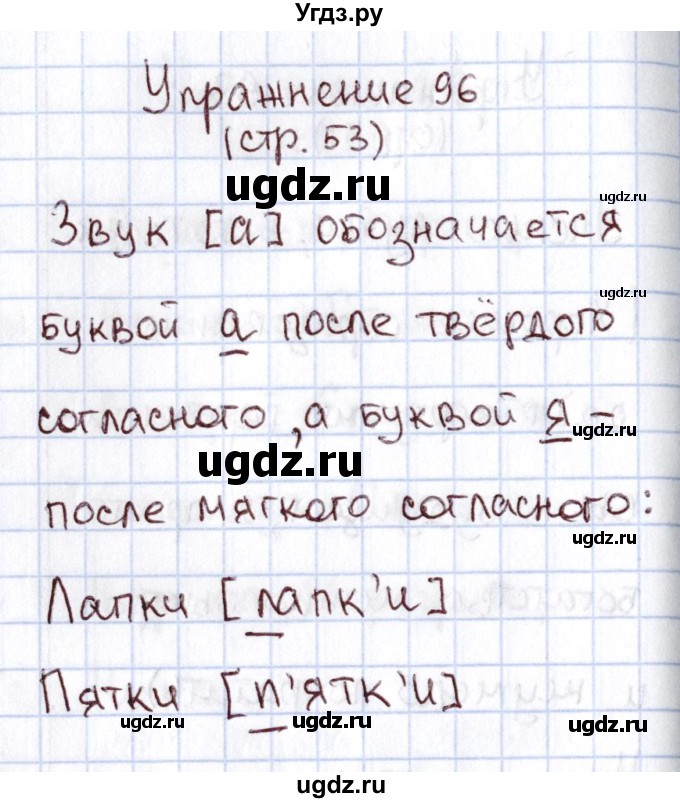 Угдз.ру
Упражнение 96
(стр. 53)
ugdz.ru
ugdz.ru
Звук [а] обозначается
ugdz.ru
буквой а после твёрдого
согласного, а буквой я –
ugdz.ru
ugdz.ru
после мягкого согласного:
ugdz.ru
Лапки [лапк'и]
Пятки [п'ятк'и]
ugdz.ru
ugdz.ru
ugdz.ru
ugdz.ru